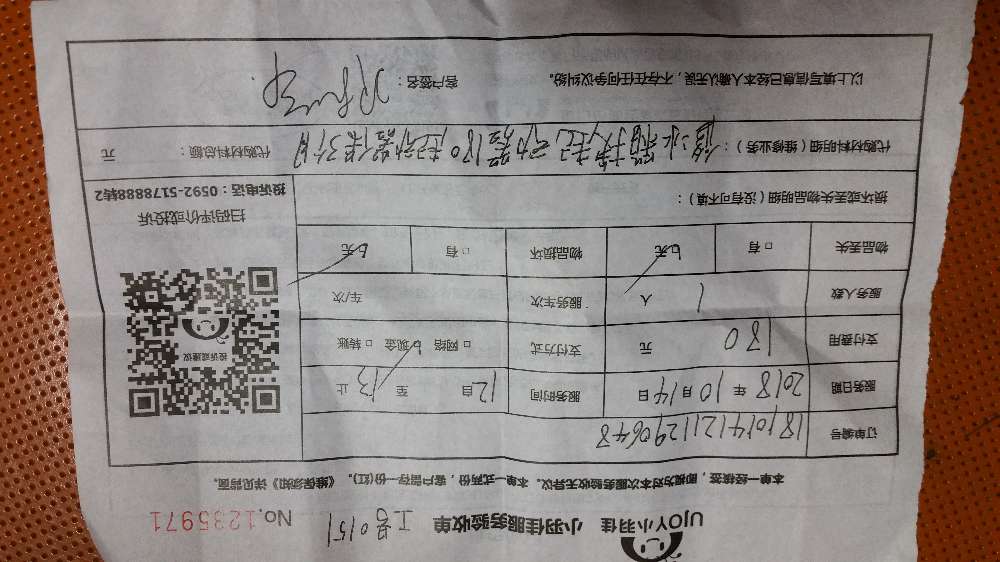 UJOY小羽佳 小羽佳服务验收单 工号0151 No.1235971
本单一经核签，即视为对本次服务验收无异议。本单一式两份，客户留存一份(红)。《维保须知》详见背面。
订单编号 1810141211290648
服务日期 2018年10月14日 服务时间 12自 至 13止
支付费用 180 元 支付方式 □网络 □现金 □转账
服务人数 1 人 服务车次 车/次
物品丢失 □有 □无 物品损坏 □有 □无
损坏或丢失物品明细（没有可不填）：
投诉或建议
扫码评价或投诉
投诉电话：0592-5178888转2
代购材料明细（维修业务）： 修冰箱换起动器180起动器保3个月 代购材料总额： 元
以上填写信息已经本人确认无误，不存在任何争议纠纷。 客户签名：